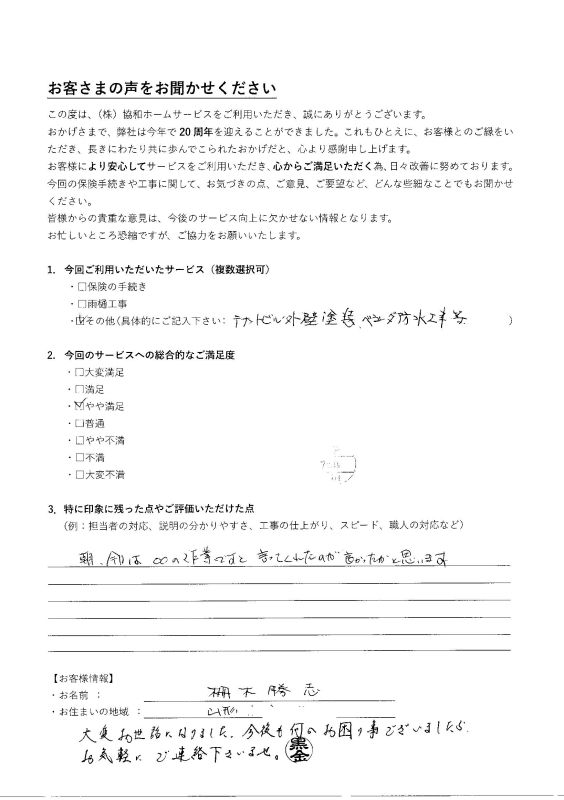 お客さまの声をお聞かせください
この度は、（株）協和ホームサービスをご利用いただき、誠にありがとうございます。
おかげさまで、弊社は今年で20周年を迎えることができました。これもひとえに、お客様とのご縁をい
ただき、長きにわたり共に歩んでこられたおかげだと、心より感謝申し上げます。
お客様により安心してサービスをご利用いただき、心からご満足いただく為、日々改善に努めております。
今回の保険手続きや工事に関して、お気づきの点、ご意見、ご要望など、どんな些細なことでもお聞かせ
ください。
皆様からの貴重な意見は、今後のサービス向上に欠かせない情報となります。
お忙しいところ恐縮ですが、ご協力をお願いいたします。
1. 今回ご利用いただいたサービス（複数選択可）
・□保険の手続き
・□雨樋工事
・☑その他(具体的にご記入下さい： テナントビル外壁塗装、ベランダ防水工事等 ）
2. 今回のサービスへの総合的なご満足度
・□大変満足
・□満足
・☑やや満足
・□普通
・□やや不満
・□不満
・□大変不満
3. 特に印象に残った点やご評価いただけた点
（例：担当者の対応、説明の分かりやすさ、工事の仕上がり、スピード、職人の対応など）
朝、今日は○○の作業ですと言ってくれたのが良かったかと思います
【お客様情報】
・お名前 ： 柵木勝志
・お住まいの地域 ：
大変お世話になりました。今後も何かお困り事ございましたら
お気軽にご連絡下さいませ。 黒金